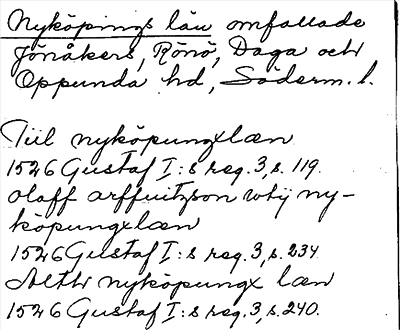 Nyköpings län omfattade
Jönåkers, Rönö, Daga och
Oppunda hd, Söderm. l.
Tiil nyköpungxlæn
1526 Gustaf I:s reg. 3, s. 119.
olaff arffuitzson wtij ny-
köpungxlæn
1526 Gustaf I:s reg. 3, s. 234
nyköpungx læn
1526 Gustaf I:s reg. 3, s. 240.